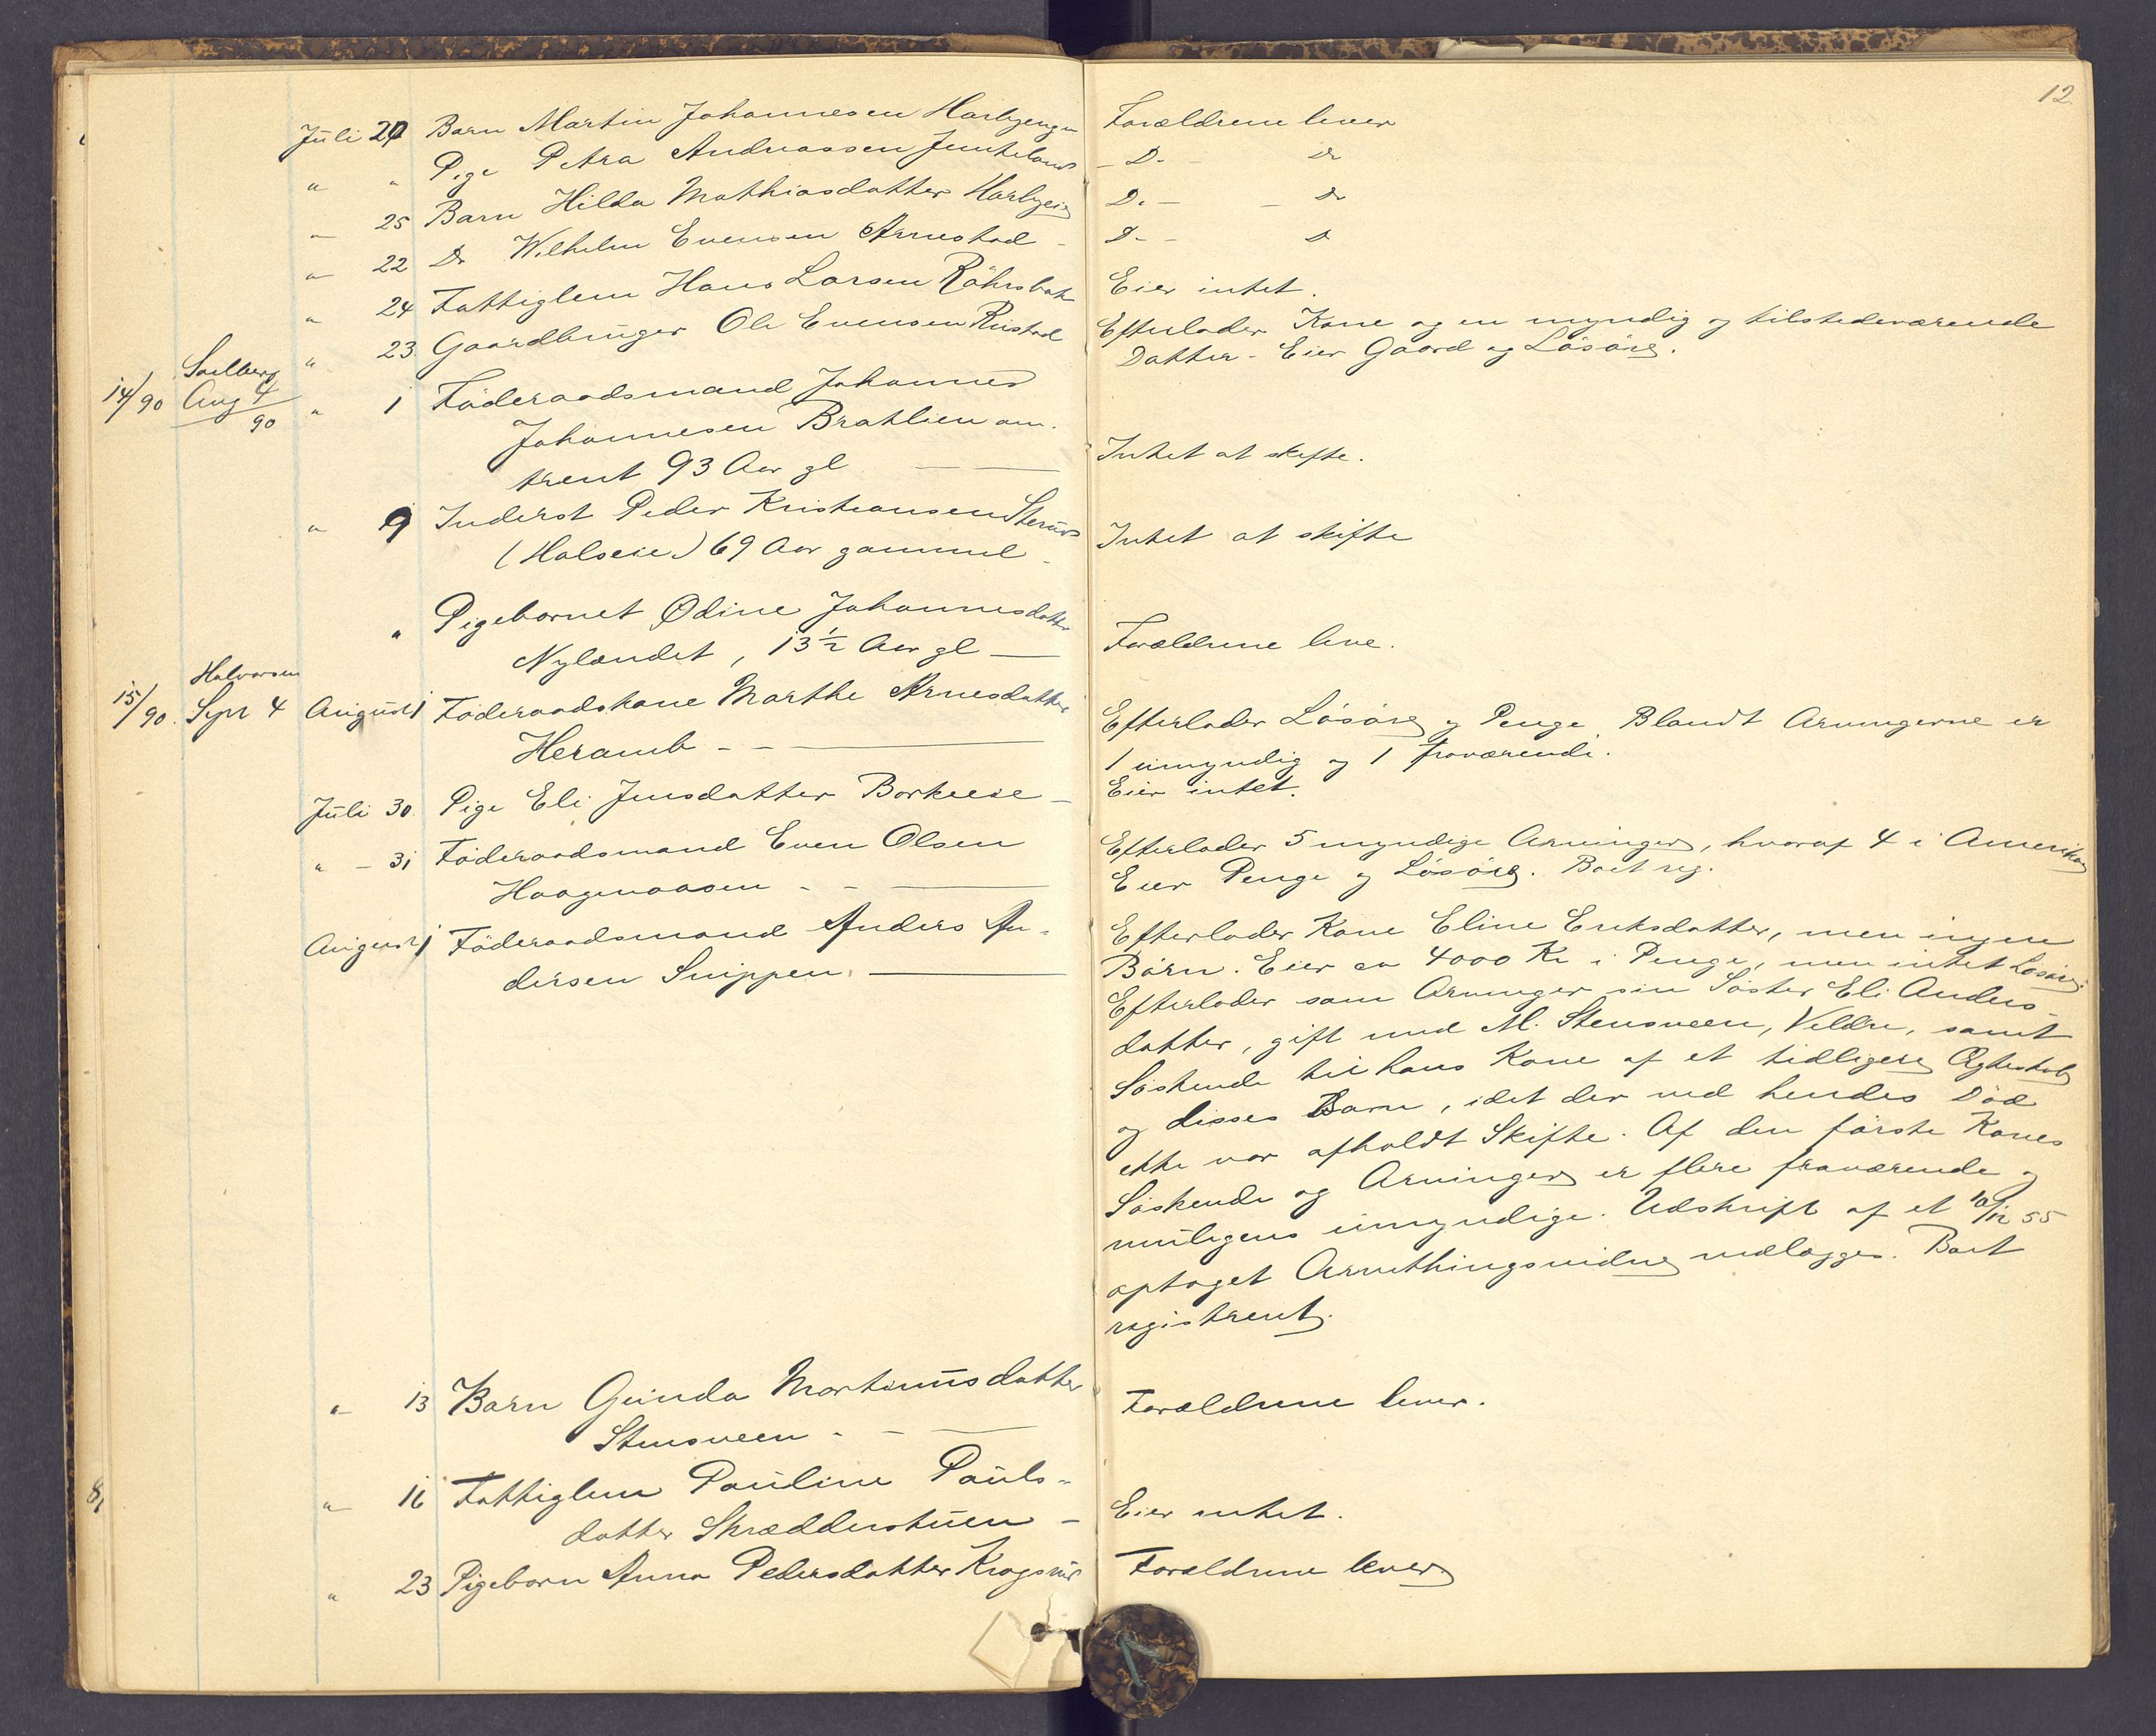 12.
Juli 27 Barn Martin Johannesen Harbyengen Forældrene lever
" " Pige Petra Andreassen - D. - Do
" 25 Barn Hilda Mathiasdatter Harbyeie D. - - Do
" 22 Do Wilhelm Evensen Arnestad - D. - D
" 24 Fattiglem Hans Larsen Röhrsbak Eier intet.
" 23 Gaardbruger Ole Evensen Ristad Efterlader Kone og en myndig og tilstedeværende
Datter. Eier Gaard og Lösöre.
14/90 Solberg
Aug 4
90
" 1 Föderaadsmand Johannes
Johannesen Bratlien om-
trent 93 Aar gl Intet at skifte.
" 9 Inderst Peder Kristiansen
(Halseie) 69 Aar gammel - Intet at skifte
" Pigebarnet Ødine Johannesdatter
Nylændet, 13 1/2 Aar gl Forældrene leve.
15/90. Halvorsen
Sept 4 August 1 Föderaadskone Marthe Arnesdatter
Heramb - - Efterlader Lösöre og Penge. Blandt Arvingerne er
1 umyndig og 1 fraværende.
Juli 30. Pige Eli Jensdatter Borkeeie - Eier intet.
" - 31 Föderaadsmand Even Olsen
Haagenaasen - - Efterlader 5 myndige Arvinger, hvoraf 4 i Amerika
Eier Penge og Lösöre. Boet reg.
August 1 Föderaadsmand Anders An-
dersen Snippen.
Efterlader Kone Eline Eriksdatter, men ingen
Börn. Eier ca 4000 Kr i Penge, men intet Lösöre.
Efterlader som Arvinger sin Söster Eli Anders-
datter, gift med M. Stensveen, Veldre, samt
Söskende til hans Kone af et tidligere Ægteskab
og disses Barn, idet der ved hendes Död
ikke var afholdt Skifte. Af den förste Kones
Söskende og Arvinger er flere fraværende og
muligens umyndige. Udskrift af et 10/12 55
optaget Arvethingsvidne vedlægges. Boet
registreret.
" 13 Barn Gunda Martinusdatter
Stensveen - - Forældrene lever.
8/
" 16 Fattiglem Pauline Pauls-
datter Skrædderstuen - Eier intet.
" 23 Pigebarn Anna Pedersdatter Krogsrud Forældrene lever